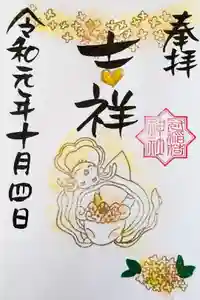 奉拝
吉祥
令和元年十月四日